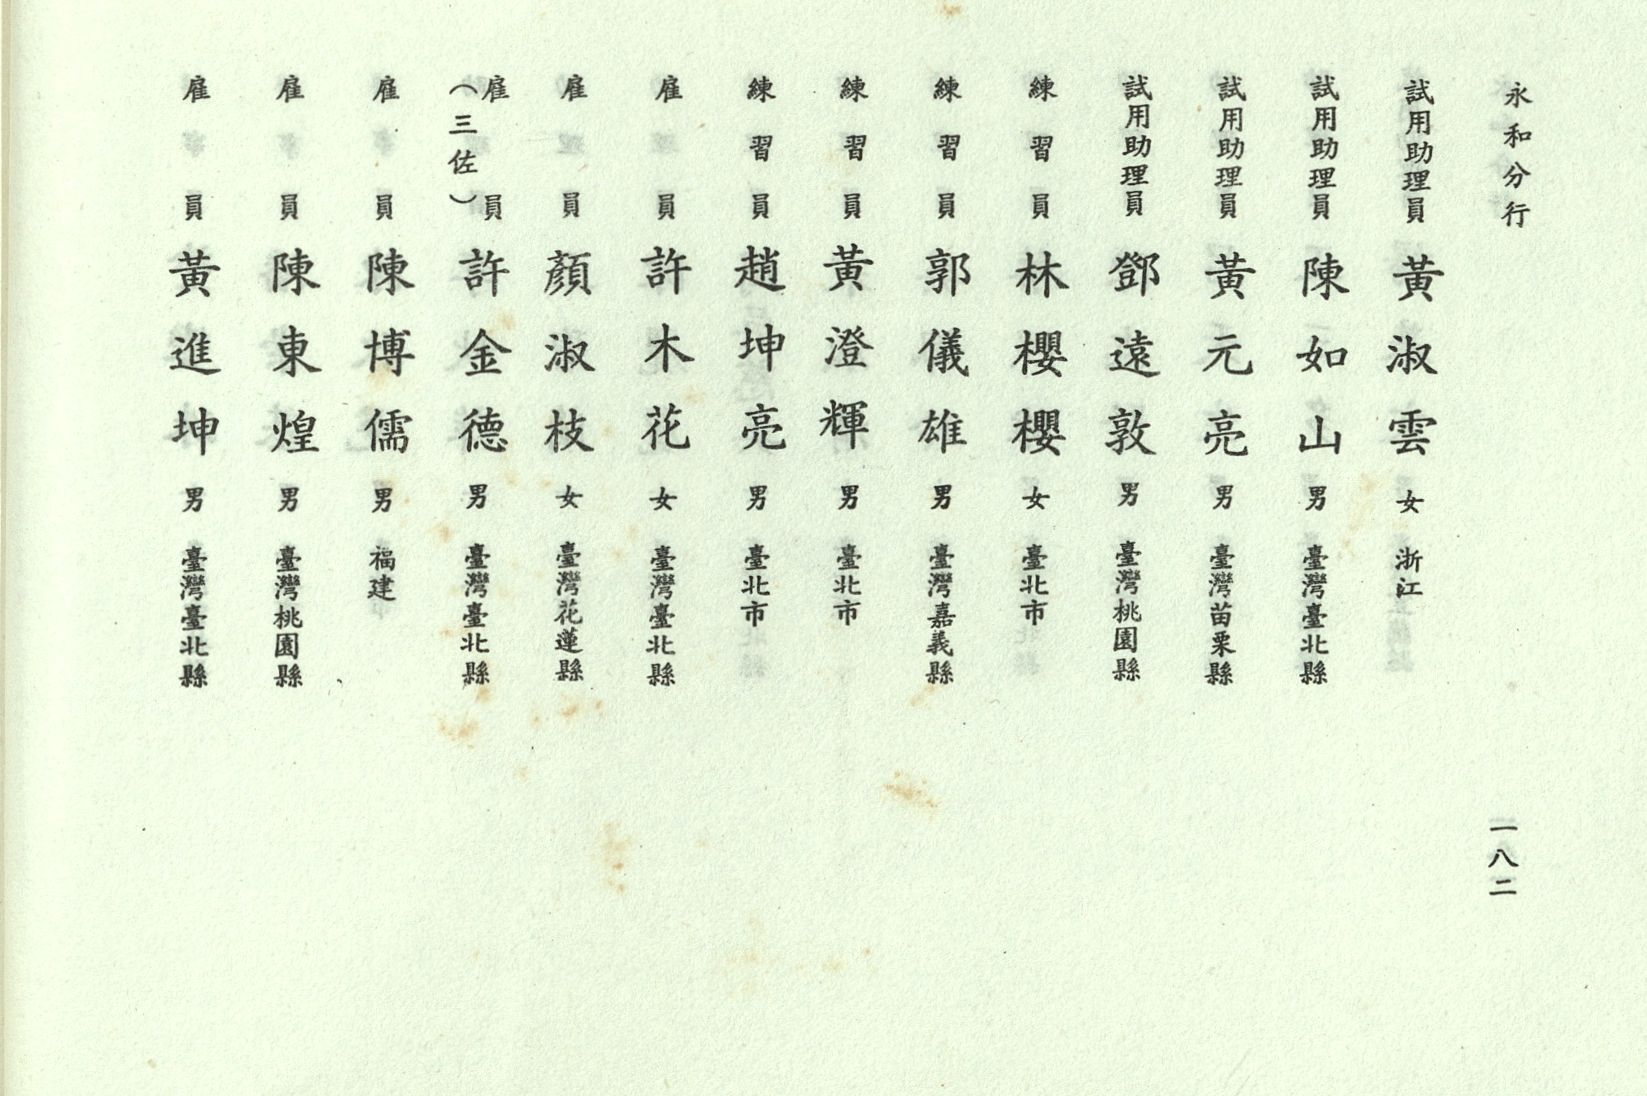 永和分行
試用助理員 黃淑雲 女 浙江
試用助理員 陳如山 男 臺灣臺北縣
試用助理員 黃元亮 男 臺灣苗栗縣
試用助理員 鄧遠敦 男 臺灣桃園縣
練習員 林櫻櫻 女 臺北市
練習員 郭儀雄 男 臺灣嘉義縣
練習員 黃澄輝 男 臺北市
練習員 趙坤亮 男 臺北市
雇員 許木花 女 臺灣臺北縣
雇員 顏淑枝 女 臺灣花蓮縣
雇員（三佐） 許金德 男 臺灣臺北縣
雇員 陳博儒 男 福建
雇員 陳東煌 男 臺灣桃園縣
雇員 黃進坤 男 臺灣臺北縣
一八二